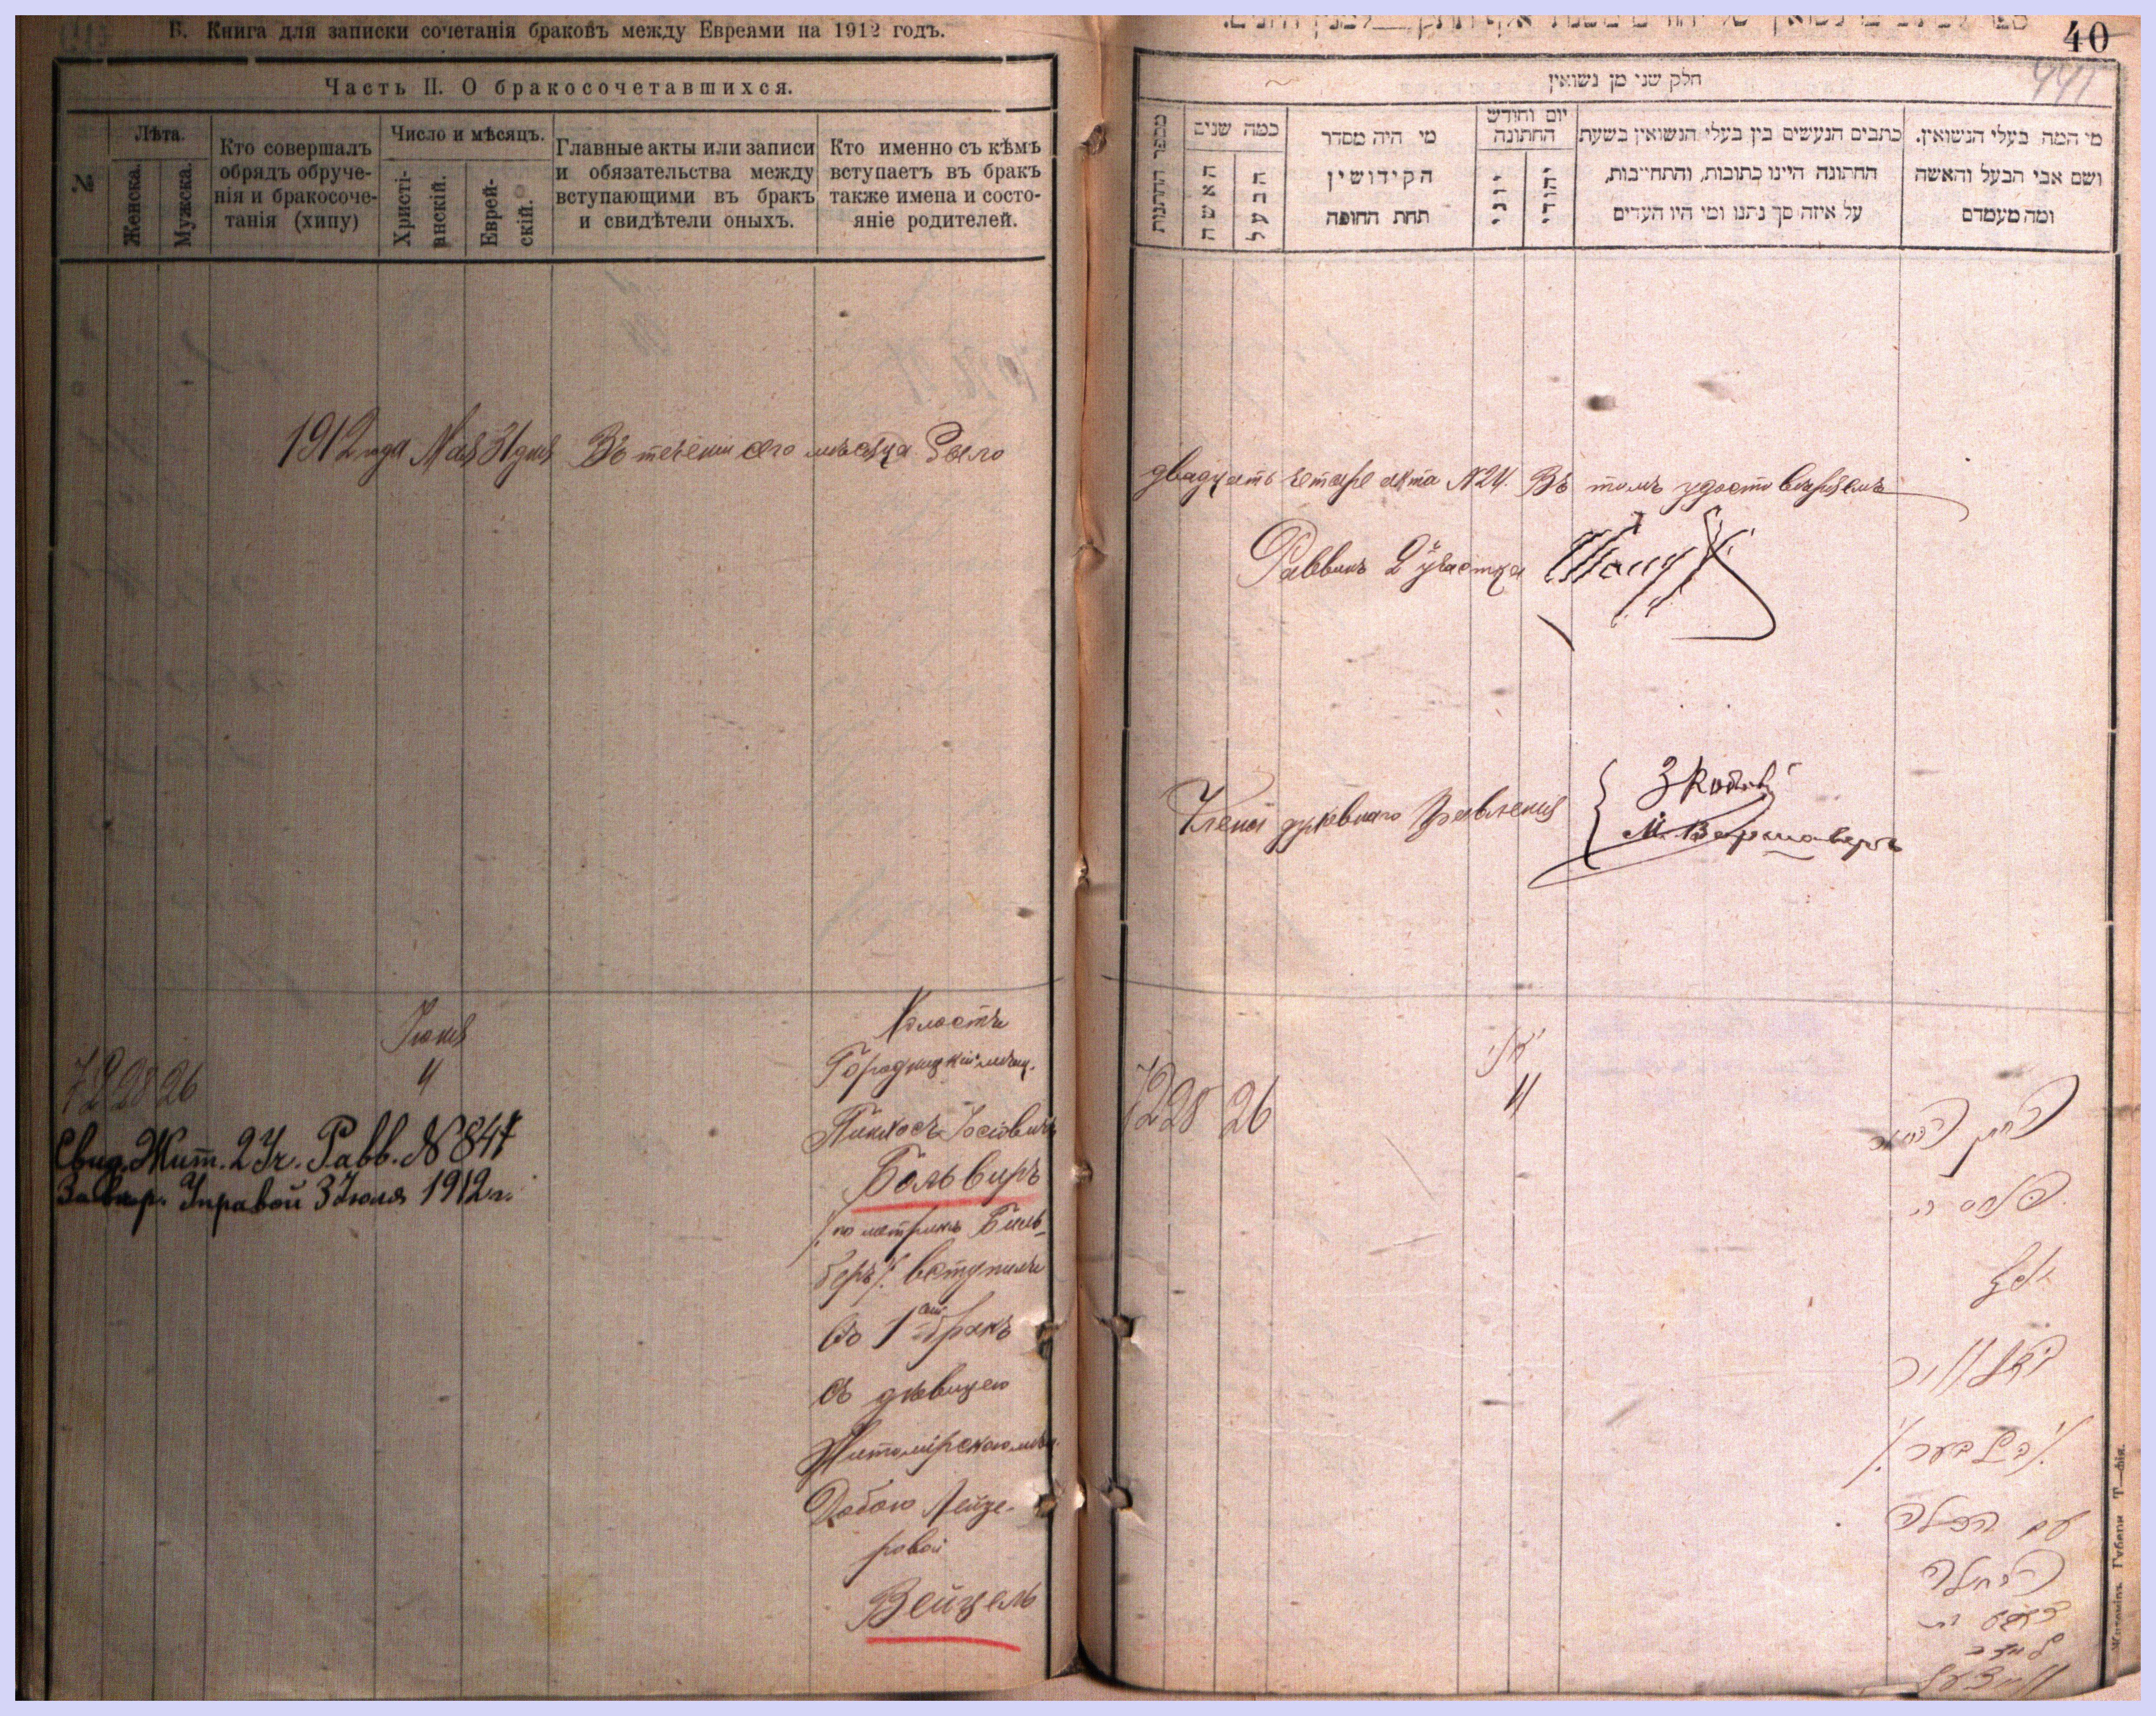 Б. Книга для записки сочетанія браковъ между Евреями на 1912 годъ.
Часть II. О бракосочетавшихся.
№
Лѣта.
Женска.
Мужска.
Кто совершалъ
обрядъ обруче-
нія и бракосоче-
танія (хипу)
Число и мѣсяцъ.
Христі-
анскій.
Еврей-
скій.
Главные акты или записи
и обязательства между
вступающими въ бракъ
и свидѣтели оныхъ.
Кто именно съ кѣмъ
вступаетъ въ бракъ
также имена и состо-
яніе родителей.
1912 года Мая 31 дня Въ теченіи сего мѣсяца было
Іюня
4
72 28 26
Свид. Жит. 2 Уч. Равв. № 847
Завѣр. Управой 3 Іюля 1912 г.
Холостъ
Городницкій мѣщ.
Пинхосъ Іосіовичъ
Больвиръ
/. по метрикѣ Биль-
беръ /. вступилъ
въ 1 бракъ
съ дѣвицею
Житомірскою мѣщ.
Добою Лейзе-
ровой
Вейцель
40
441
חלק שני מן נשואין
מספר הדתנות
כמה שנים
האשה
הבעל
מי היה מסדר
הקידושין
תחת החופה
יום וחודש
החתונה
יוני
יהודי
כתבים הנעשים בין בעלי הנשואין בשעת
החתונה היינו כתובות, והתחייבות,
על איזה סך נתנו ומי היו העדים
מי המה בעלי הנשואין.
ושם אבי הבעל והאשה
ומה מעמדם
двадцать четыре акта №24. Въ томъ удостовѣряемъ
Раввинъ 2 участка
Члены духовнаго Правленія
72 28 26
4
הבחור
פנחס
יוסף
באלוויר
/. בילבער ./
עם הבתולה
לייזר
ווייצעל